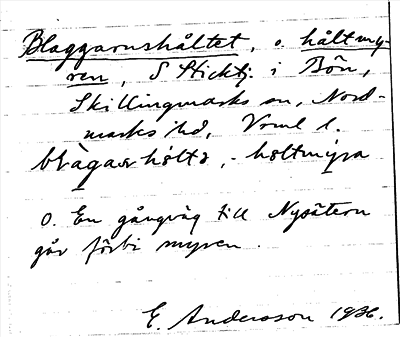 Blaggarnshåltet, o. håltmy-
ren, S Sticktj. i Bön,
Skillingmarks sn, Nord-
marks hd, Vrml l.
blàgaṇhòltə, -hòltmỳra
O. En gångväg till Nysätern
går förbi myren.
E. Andersson 1936.